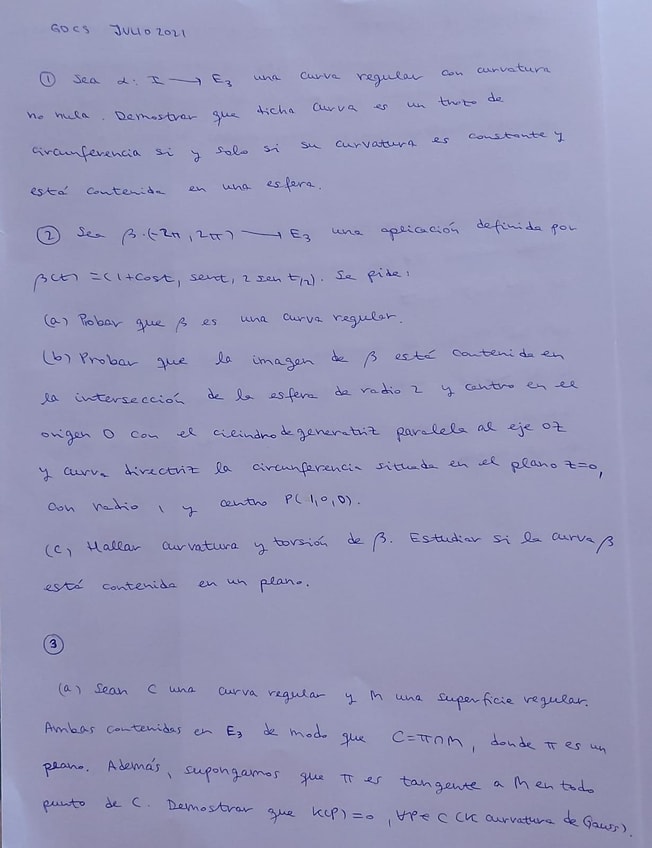 GDCS JULIO 2021
① Sea α: I → E₃ una curva regular con curvatura
no nula. Demostrar que dicha curva es un trozo de
circunferencia si y solo si su curvatura es constante y
está contenida en una esfera.
② Sea β:(-2π, 2π) → E₃ una aplicación definida por
β(t) = (1+cost, sent, 2 sen t/2). Se pide:
(a) Probar que β es una curva regular.
(b) Probar que la imagen de β está contenida en
la intersección de la esfera de radio 2 y centro en el
origen O con el cilindro de generatriz paralela al eje OZ
y curva directriz la circunferencia situada en el plano z=0,
con radio 1 y centro P(1,0,0).
(c) Hallar curvatura y torsión de β. Estudiar si la curva β
está contenida en un plano.
③
(a) Sean C una curva regular y M una superficie regular.
Ambas contenidas en E₃ de modo que C=π∩M, donde π es un
plano. Además, supongamos que π es tangente a M en todo
punto de C. Demostrar que K(P)=0, ∀P∈C (K curvatura de Gauss).